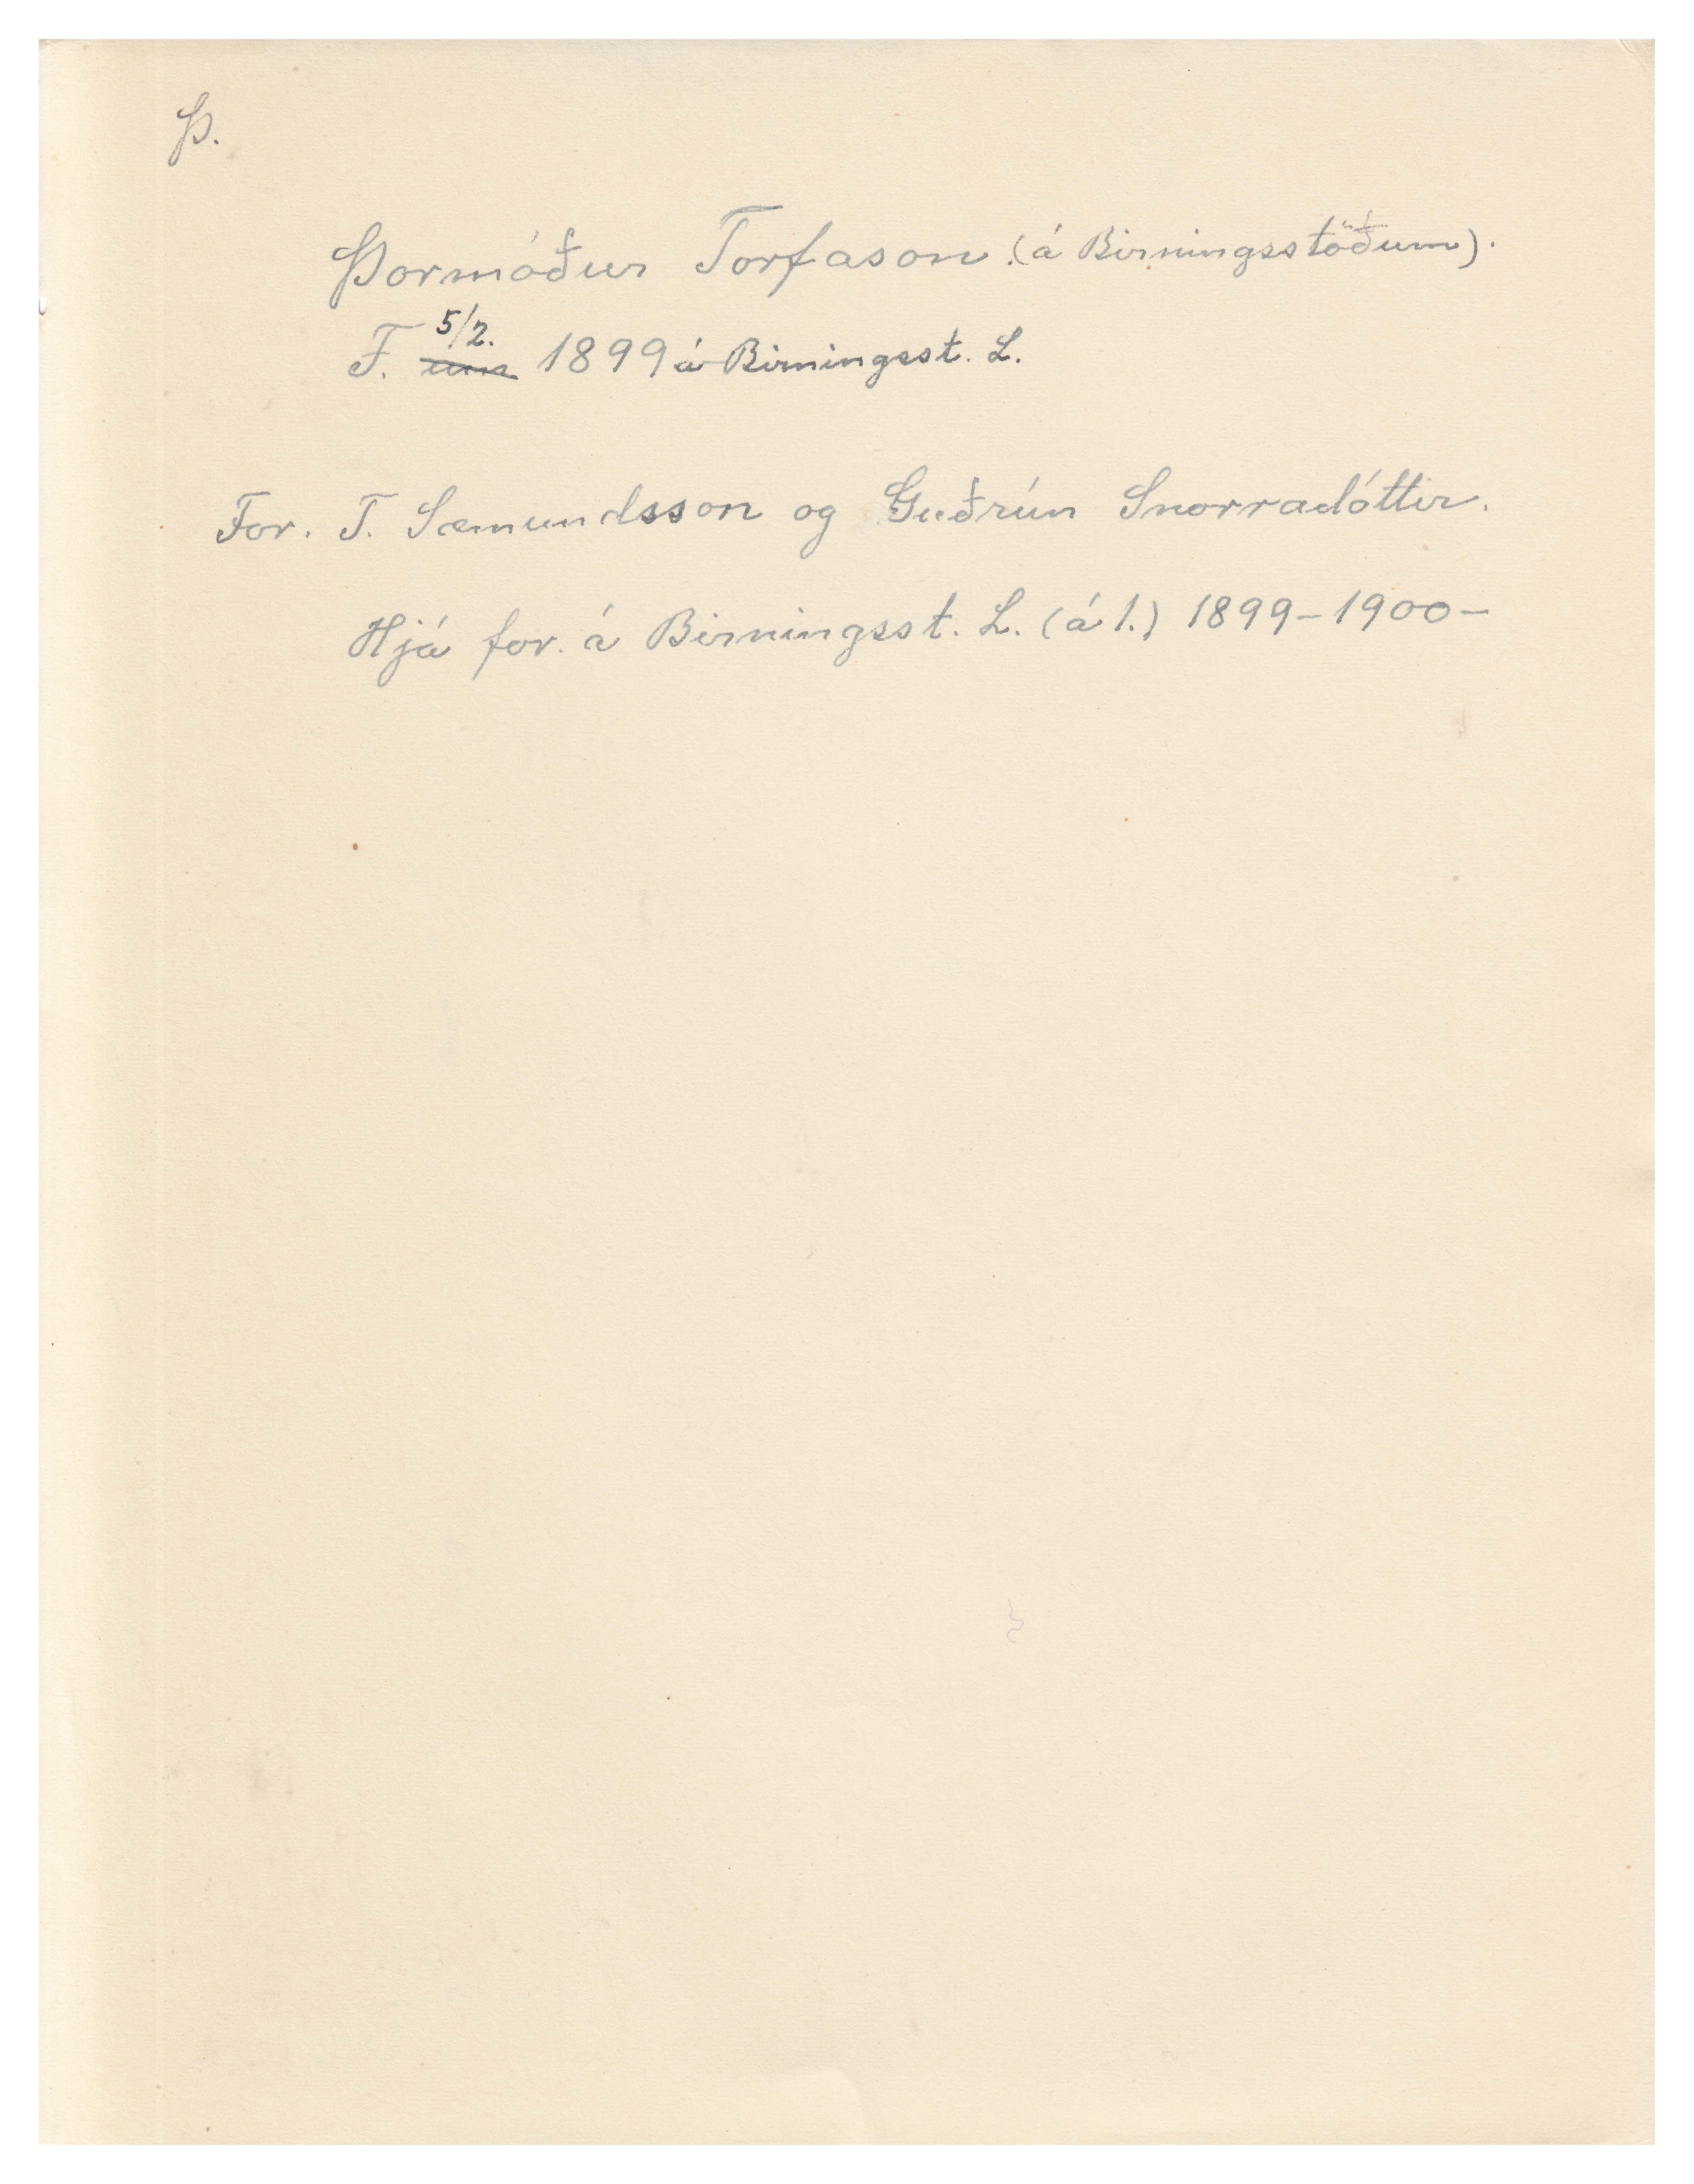 Þ.
Þormóður Torfason. (á Birningsstöðum).
F. 5/2. um 1899 á Birningsst. L.
For. T. Sæmundsson og Guðrún Snorradóttir.
Hjá for. á Birningsst. L. (á 1.) 1899-1900-